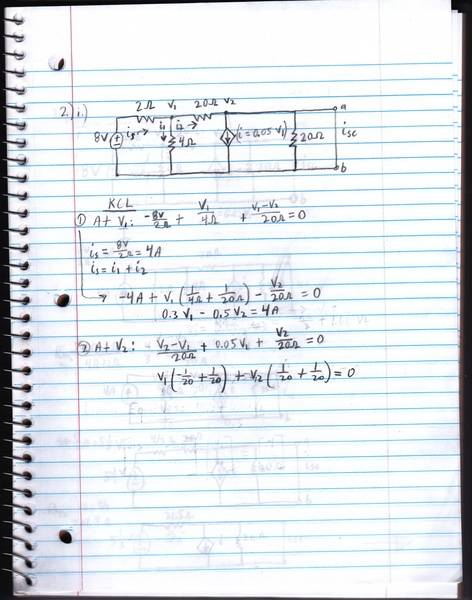 2.) i.)
2Ω V₁ 20Ω V₂
a
8V + - is → i₁ ↓ i₂ → 4Ω (i = 0.05 V₁) 20Ω isc
b
KCL
① At V₁: -8V/2Ω + V₁/4Ω + V₁-V₂/20Ω = 0
is = 8V/2Ω = 4A
is = i₁ + i₂
→ -4A + V₁(1/4Ω + 1/20Ω) - V₂/20Ω = 0
0.3 V₁ - 0.5 V₂ = 4A
② At V₂: V₂-V₁/20Ω + 0.05 V₁ + V₂/20Ω = 0
V₁(-1/20 + 1/20) + V₂(1/20 + 1/20) = 0